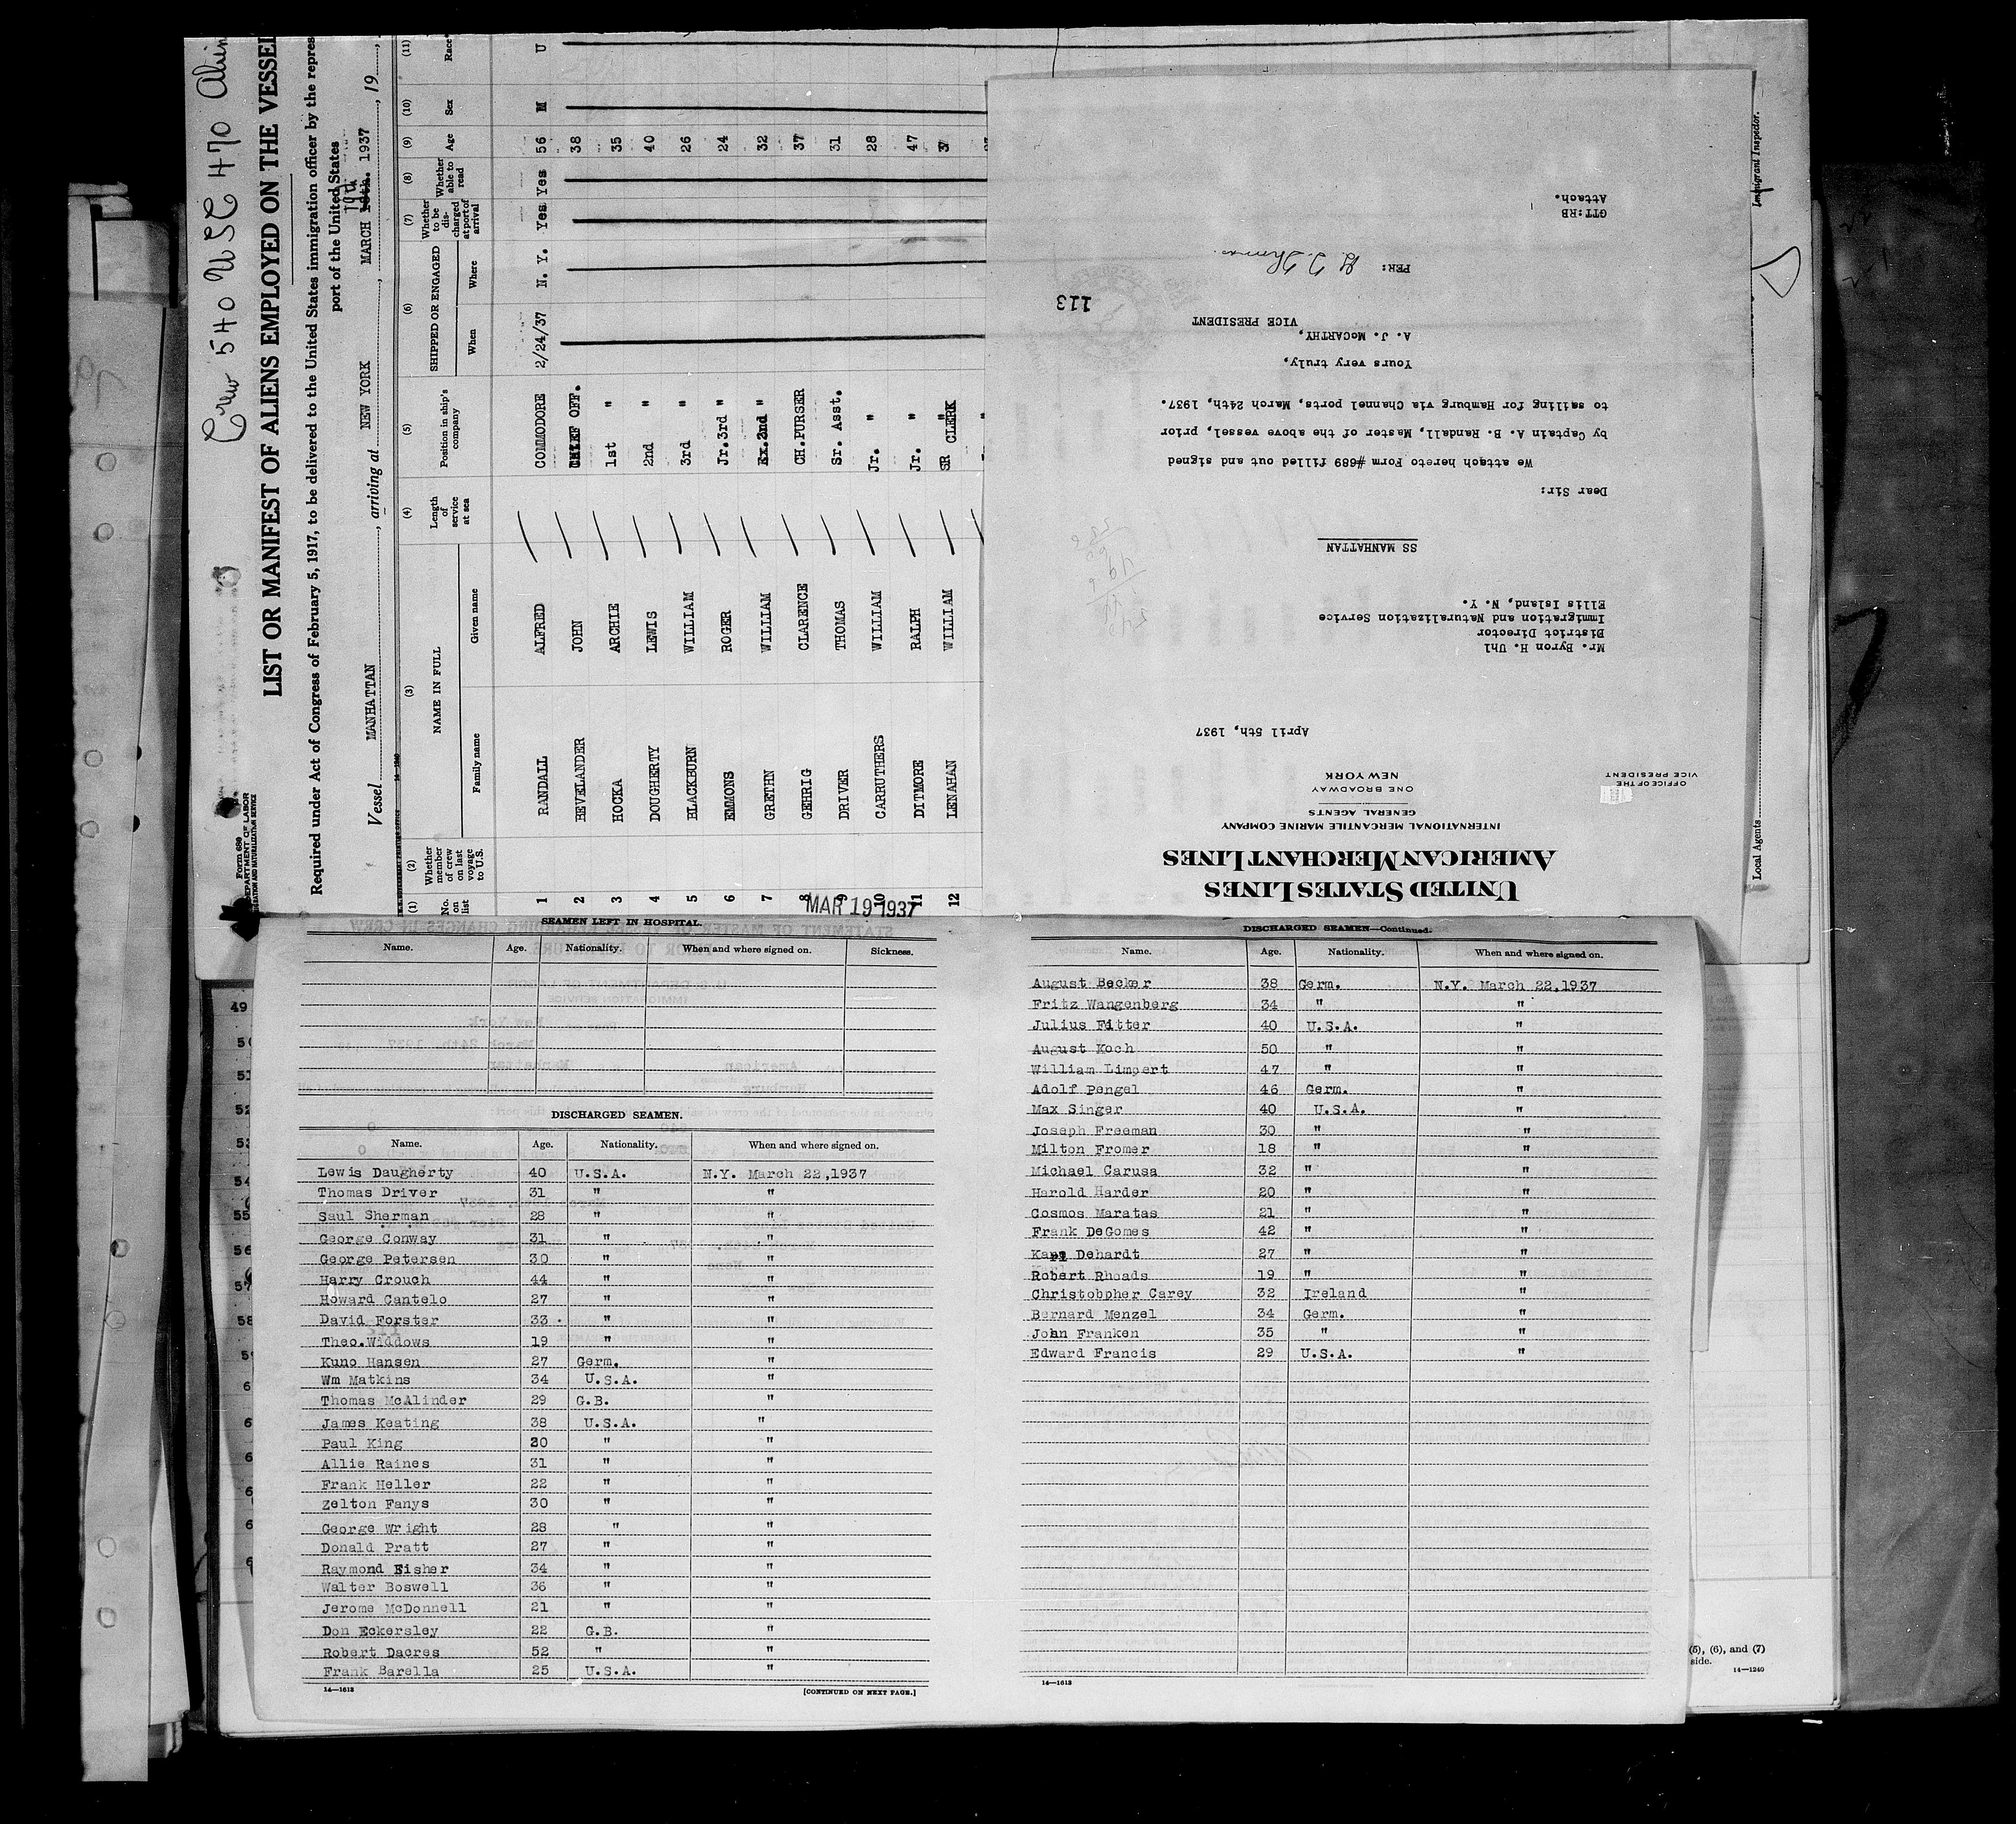 Crew 540 USC 470 Alien
Form 689
DEPARTMENT OF LABOR
IMMIGRATION AND NATURALIZATION SERVICE
LIST OR MANIFEST OF ALIENS EMPLOYED ON THE VESSEL
Required under Act of Congress of February 5, 1917, to be delivered to the United States immigration officer by the repres
port of the United States
Vessel MANHATTAN, arriving at NEW YORK, MARCH 19th 1937, 19
(1) (2) (3) (4) (5) (6) (7) (8) (9) (10) (11)
No. on list Whether member of crew on last voyage to U.S. NAME IN FULL Family name Given name Length of service at sea Position in ship's company SHIPPED OR ENGAGED When Where Whether to be discharged at port of arrival Whether able to read Age Sex Race*
1 RANDALL ALFRED COMMODORE 2/24/37 N. Y. Yes Yes 56 M U
2 BEVELANDER JOHN CHIEF OFF. 38
3 HOCKA ARCHIE 1st " 35
4 DOUGHERTY LEWIS 2nd " 40
5 BLACKBURN WILLIAM 3rd " 26
6 EMMONS ROGER Jr.3rd " 24
7 GRETHN WILLIAM Ex.2nd " 32
8 GEHRIG CLARENCE CH.PURSER 37
9 DRIVER THOMAS Sr. Asst. 31
10 CARRUTHERS WILLIAM Jr. " 28
11 DITMORE RALPH Jr. " 47
12 LENAHAN WILLIAM SR CLERK 37
MAR 19 1937
UNITED STATES LINES
AMERICAN MERCHANT LINES
INTERNATIONAL MERCANTILE MARINE COMPANY
GENERAL AGENTS
ONE BROADWAY
NEW YORK
OFFICE OF THE
VICE PRESIDENT
April 5th, 1937
Mr. Byron H. Uhl
District Director
Immigration and Naturalization Service
Ellis Island, N. Y.
SS MANHATTAN
Dear Sir:
We attach hereto Form #689 filled out and signed
by Captain A. B. Randall, Master of the above vessel, prior
to sailing for Hamburg via Channel ports, March 24th, 1937.
Yours very truly,
A. J. McCARTHY,
VICE PRESIDENT
113
PER:
GTT:RB
Attach.
Immigrant Inspector.
Local Agents
SEAMEN LEFT IN HOSPITAL.
Name. Age. Nationality. When and where signed on. Sickness.
DISCHARGED SEAMEN.
Name. Age. Nationality. When and where signed on.
Lewis Daugherty 40 U.S.A. N.Y. March 22,1937
Thomas Driver 31 " "
Saul Sherman 28 " "
George Conway 31 " "
George Petersen 30 " "
Harry Crouch 44 " "
Howard Cantelo 27 " "
David Forster 33 " "
Theo.Widdows 19 " "
Kuno Hansen 27 Germ. "
Wm Matkins 34 U.S.A. "
Thomas McAlinder 29 G.B. "
James Keating 38 U.S.A. "
Paul King 30 " "
Allie Raines 31 " "
Frank Heller 22 " "
Zelton Fanys 30 " "
George Wright 28 " "
Donald Pratt 27 " "
Raymond Fisher 34 " "
Walter Boswell 36 " "
Jerome McDonnell 21 " "
Don Eckersley 22 G.B. "
Robert Dacres 52 " "
Frank Barella 25 U.S.A. "
14—1613
[CONTINUED ON NEXT PAGE.]
DISCHARGED SEAMEN—Continued.
Name. Age. Nationality. When and where signed on.
August Becker 38 Germ. N.Y. March 22,1937
Fritz Wangenberg 34 " "
Julius Fitter 40 U.S.A. "
August Koch 50 " "
William Limpert 47 " "
Adolf Pengel 46 Germ. "
Max Singer 40 U.S.A. "
Joseph Freeman 30 " "
Milton Fromer 18 " "
Michael Carusa 32 " "
Harold Harder 20 " "
Cosmos Maratas 21 " "
Frank DeGomes 42 " "
Karl Dehardt 27 " "
Robert Rhoads 19 " "
Christobpher Carey 32 Ireland "
Bernard Menzel 34 Germ. "
John Franken 35 " "
Edward Francis 29 U.S.A. "
14—1613
49
50
51
52
53
54
55
56
57
58
(5), (6), and (7)
side.
14—1240